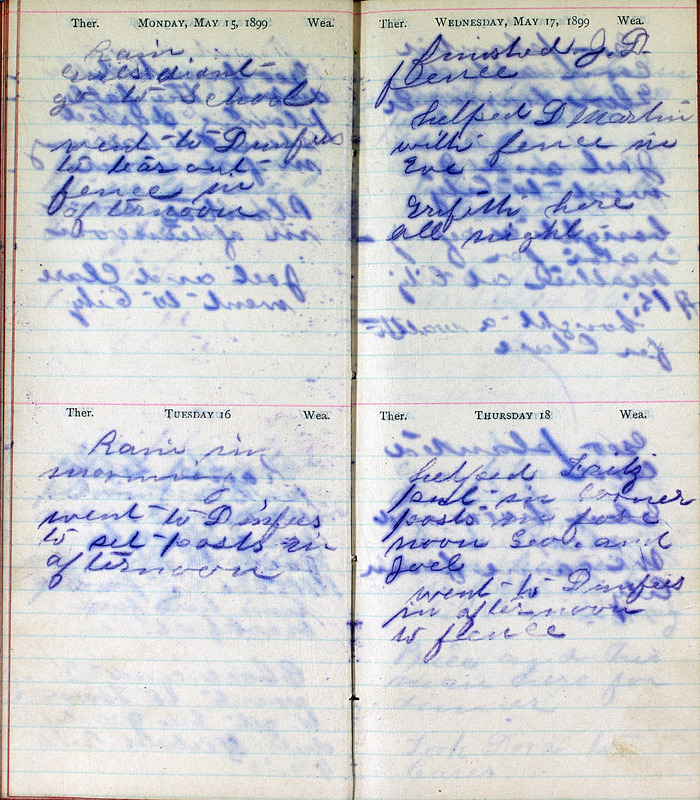 Ther. MONDAY, MAY 15, 1899 Wea.
Rain
didnt
go to School
went to Dunfees
to tear out
fence in
afternoon
Ther. TUESDAY 16 Wea.
Rain in
morning
went to Dunfees
to set posts in
afternoon
Ther. WEDNESDAY, MAY 17, 1899 Wea.
finished J.D.
fence
helped D Martin
with fence in
Eve
Griffith here
all night
Ther. THURSDAY 18 Wea.
helped Fritz
put in corner
posts in fore
noon Geo. and
Joel
went to Dunfees
in afternoon
to fence